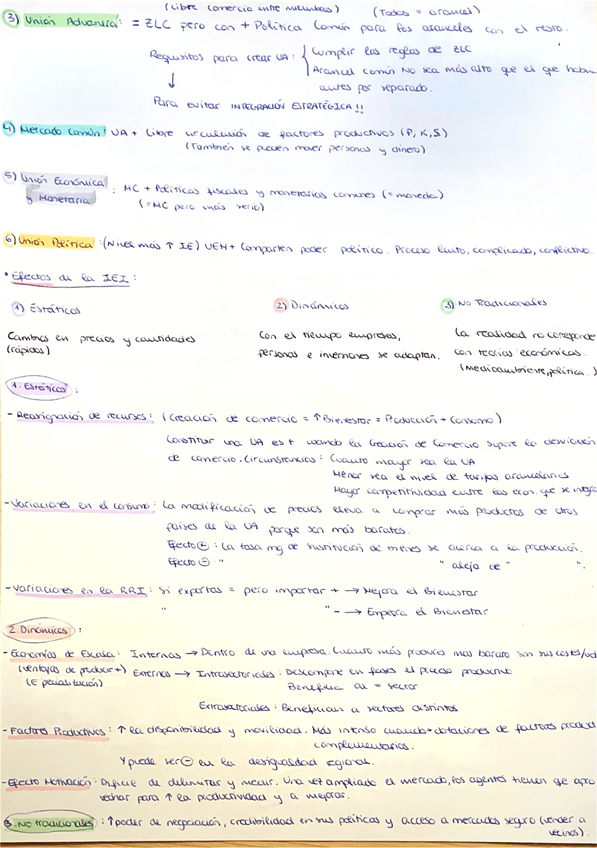 (Libre comercio entre miembros) (Todos = arancel)
3) Unión Aduanera: = ZLC pero con + Política Común para los aranceles con el resto.
Requisitos para crear UA: { Cumplir las reglas de ZLC
Arancel común NO sea más alto que el que había
↓ antes por separado.
Para evitar INTEGRACIÓN ESTRATÉGICA!!
4) Mercado Común: UA + Libre circulación de factores productivos (P, K, S)
(También se pueden mover personas y dinero)
5) Unión Económica y Monetaria: MC + Políticas fiscales y monetarias comunes (= moneda)
(= MC pero más serio)
6) Unión Política: (Nivel más ↑ IE) UEM + Comparten poder político. Proceso lento, complicado, conflictivo.
• Efectos de la IEI:
1) Estáticos 2) Dinámicos 3) No Tradicionales
Cambios en precios y cantidades Con el tiempo empresas, La realidad no corresponde
(rápidos) personas e inversiones se adaptan. con teorías económicas.
(Medioambiente, política...)
1. Estáticos:
- Reasignación de recursos: (Creación de comercio = ↑ Bienestar = Producción + Consumo)
Constituir una UA es + cuando la Creación de Comercio supere la desviación
de comercio. Circunstancias: Cuanto mayor sea la UA
Menor sea el nivel de tarifas arancelarias
Mayor competitividad entre las econ. que se integra
- Variaciones en el consumo: La modificación de precios lleva a comprar más productos de otros
países de la UA porque son más baratos.
Efecto ⊕: La tasa mg de sustitución de bienes se acerca a la producción.
Efecto ⊖: " " aleja de " ".
- Variaciones en la RRI: Si exportas = pero importar + → Mejora el Bienestar
" " - → Empeora el Bienestar
2. Dinámicos:
- Economías de Escala: Internas → Dentro de una empresa. Cuanto más produces más barato son sus costes/ud
(Ventajas de producir +) Externas → Intrasectoriales: Descompone en fases el proceso productivo
(Especialización) Beneficia al = sector
Extrasectoriales: Benefician a sectores distintos
- Factores Productivos: ↑ la disponibilidad y movilidad. Más intenso cuando + dotaciones de factores product
complementarios.
Y puede ser ⊖ en la desigualdad regional.
- Efecto Motivación: Difícil de delimitar y medir. Una vez ampliado el mercado, los agentes tienen que apro
vechar para ↑ la productividad y a mejorar.
3. No tradicionales: ↑ poder de negociación, credibilidad en sus políticas y acceso a mercados seguro (vender a
vecinos).